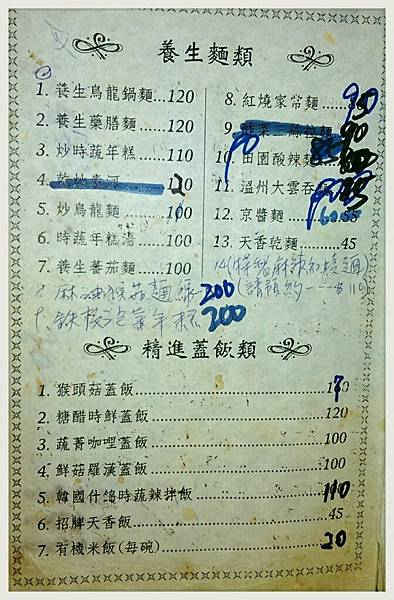 養生麵類
1. 養生烏龍鍋麵...120
2. 養生藥膳麵...120
3. 炒時蔬年糕...110
4. 乾炒素河
5. 炒烏龍麵
6. 時蔬年糕湯...100
7. 養生蕃茄麵...100
麻油猴菇麵線 200
泡菜年糕 200
8. 紅燒家常麵
9.
10. 田園酸辣麵
11. 溫州大雲吞
12. 京醬麵
13. 天香乾麵...45
14.
精進蓋飯類
1. 猴頭菇蓋飯
2. 糖醋時鮮蓋飯...120
3. 蔬菁咖哩蓋飯...100
4. 鮮菇羅漢蓋飯...100
5. 韓國什鴿時蔬辣拌飯...110
6. 招牌天香飯...45
7. 有機米飯(每碗)...20